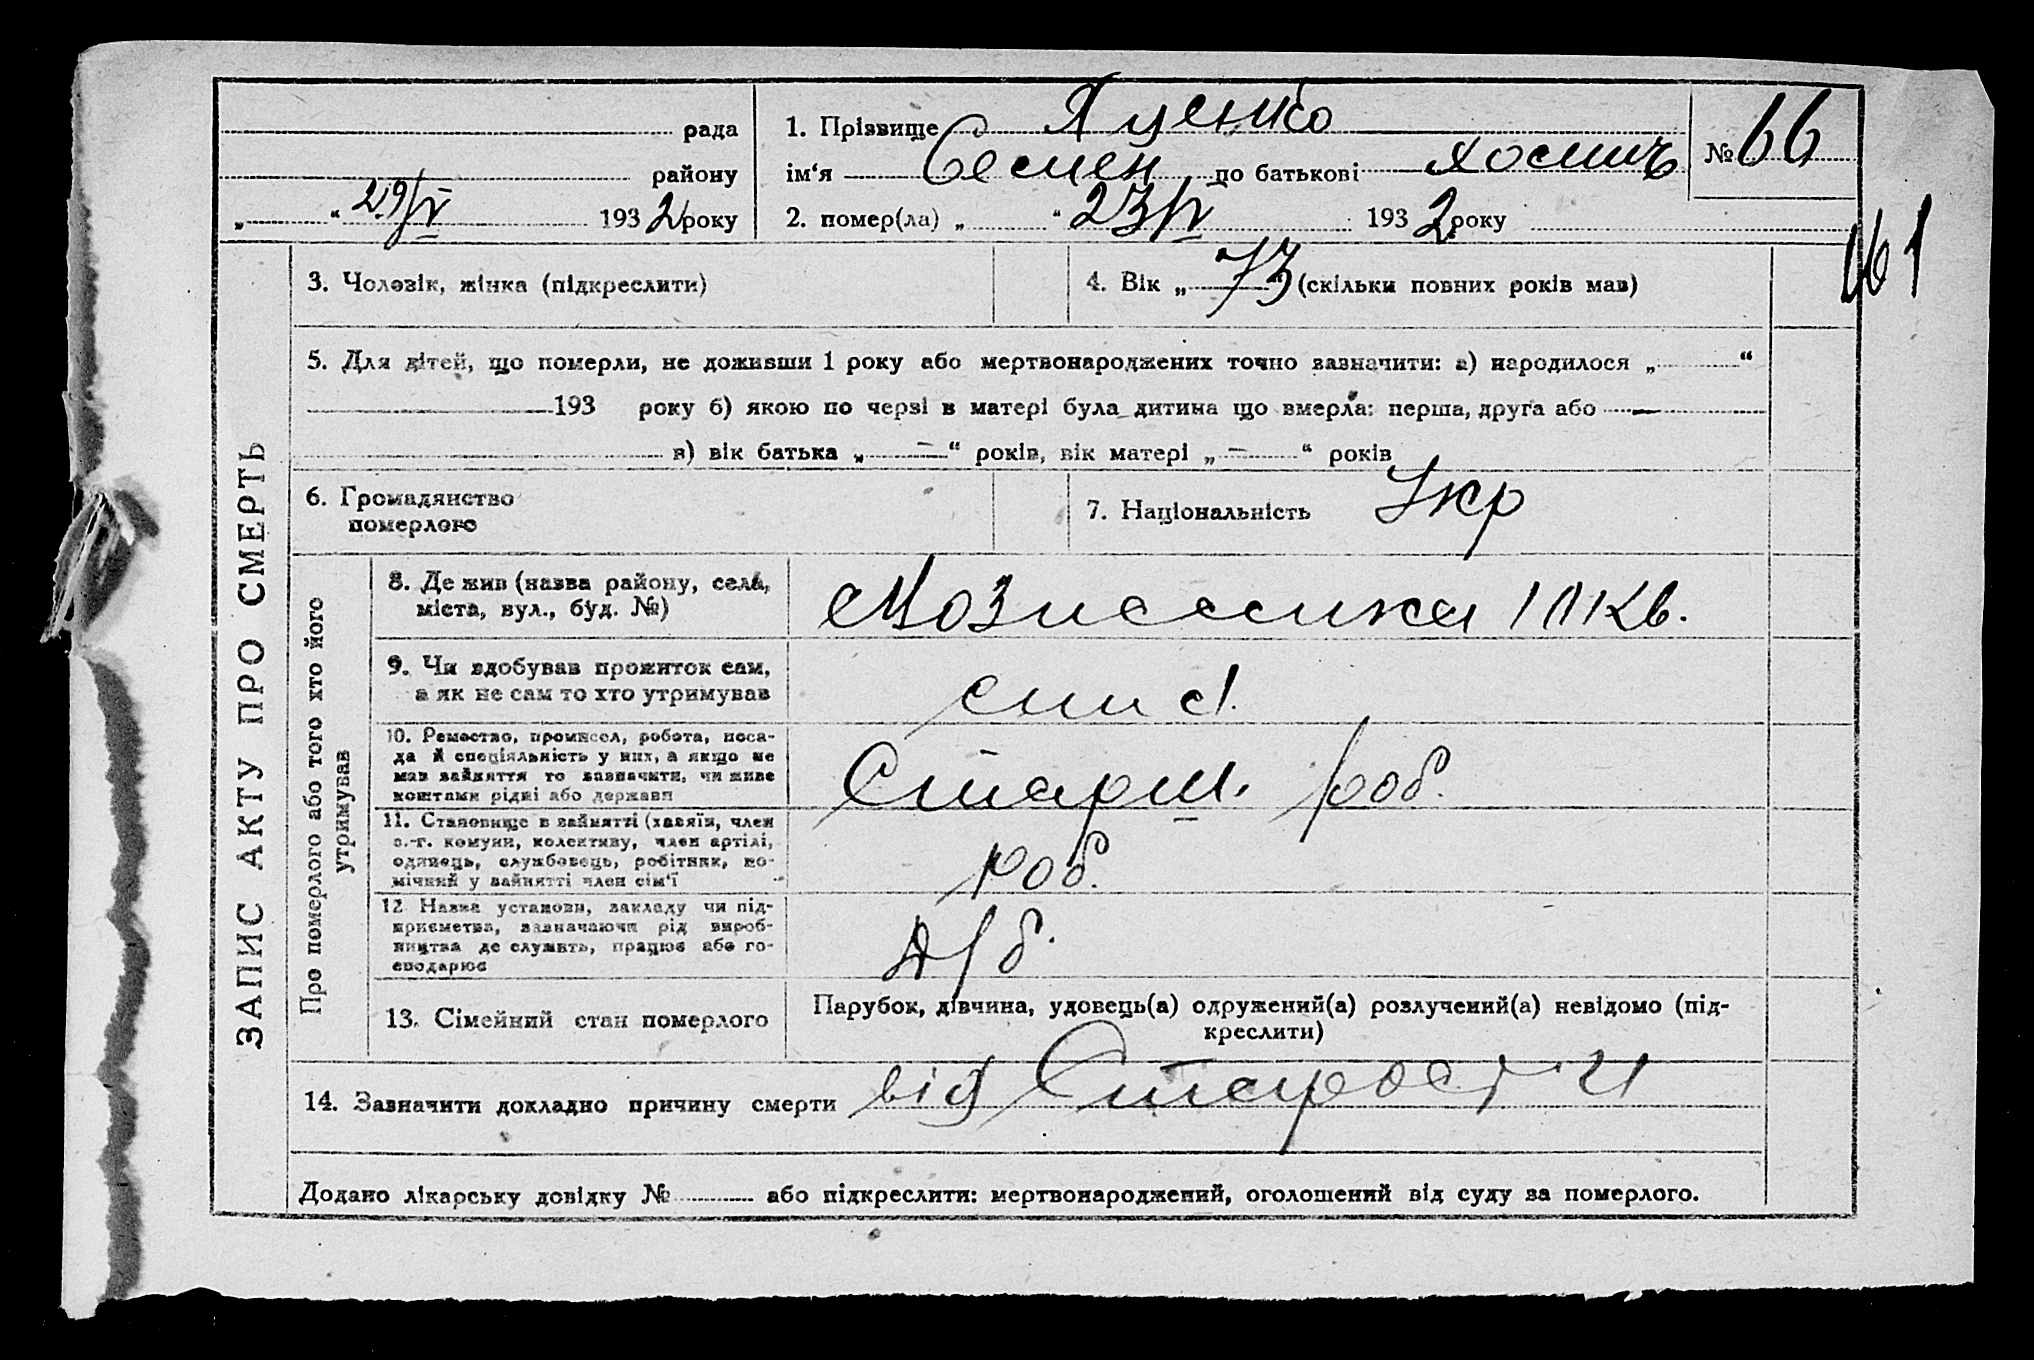 рада
району
„ “ 29/IV 1932 року
1. Прізвище Яценко
ім‘я Семен по батькові
№ 66
2. помер(ла) „ “ 23/IV 1932 року
ЗАПИС АКТУ ПРО СМЕРТЬ
3. Чоловік, жінка (підкреслити)
4. Вік „ 73 “ (скільки повних років мав)
5. Для дітей, що померли, не доживши 1 року або мертвонароджених точно зазначити: а) народилося „ “
193 року б) якою по черзі в матері була дитина що вмерла: перша, друга або —
в) вік батька „ — “ років, вік матері „ — “ років
6. Громадянство
померлого
7. Національність Укр
Про померлого або того хто його
утримував
8. Де жив (назва району, села,
міста, вул., буд. №)
9. Чи здобував прожиток сам,
а як не сам то хто утримував
10. Ремество, промисел, робота, поса-
да й спеціяльність у них, а якщо не
мав зайняття то зазначити, чи живе
коштами рідні або держави
роб.
11. Становище в зайнятті (хазяїн, член
с.-г. комуни, колективу, член артілі,
одинець, службовець, робітник, по-
мічний у зайнятті член сім‘ї
роб.
12. Назва установи, закладу чи під-
приємства, зазначаючи рід вироб-
ництва де служить, працює або го-
сподарює
13. Сімейний стан померлого
Парубок, дівчина, удовець(а) одружений(а) розлучений(а) невідомо (під-
креслити)
14. Зазначити докладно причину смерти від Старости
Додано лікарську довідку № або підкреслити: мертвонароджений, оголошений від суду за померлого.